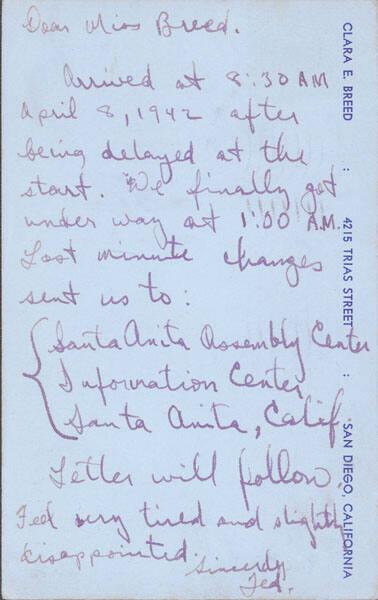 Dear Miss Breed.
Arrived at 8:30 AM
April 8, 1942 after
being delayed at the
start. We finally got
under way at 1:00 A.M.
Last minute changes
sent us to:
Santa Anita Assembly Center
Information Center
Santa Anita, Calif
Letter will follow.
Feel very tired and slightly
disappointed.
Sincerely
Ted.
CLARA E. BREED : 4215 TRIAS STREET : SAN DIEGO, CALIFORNIA